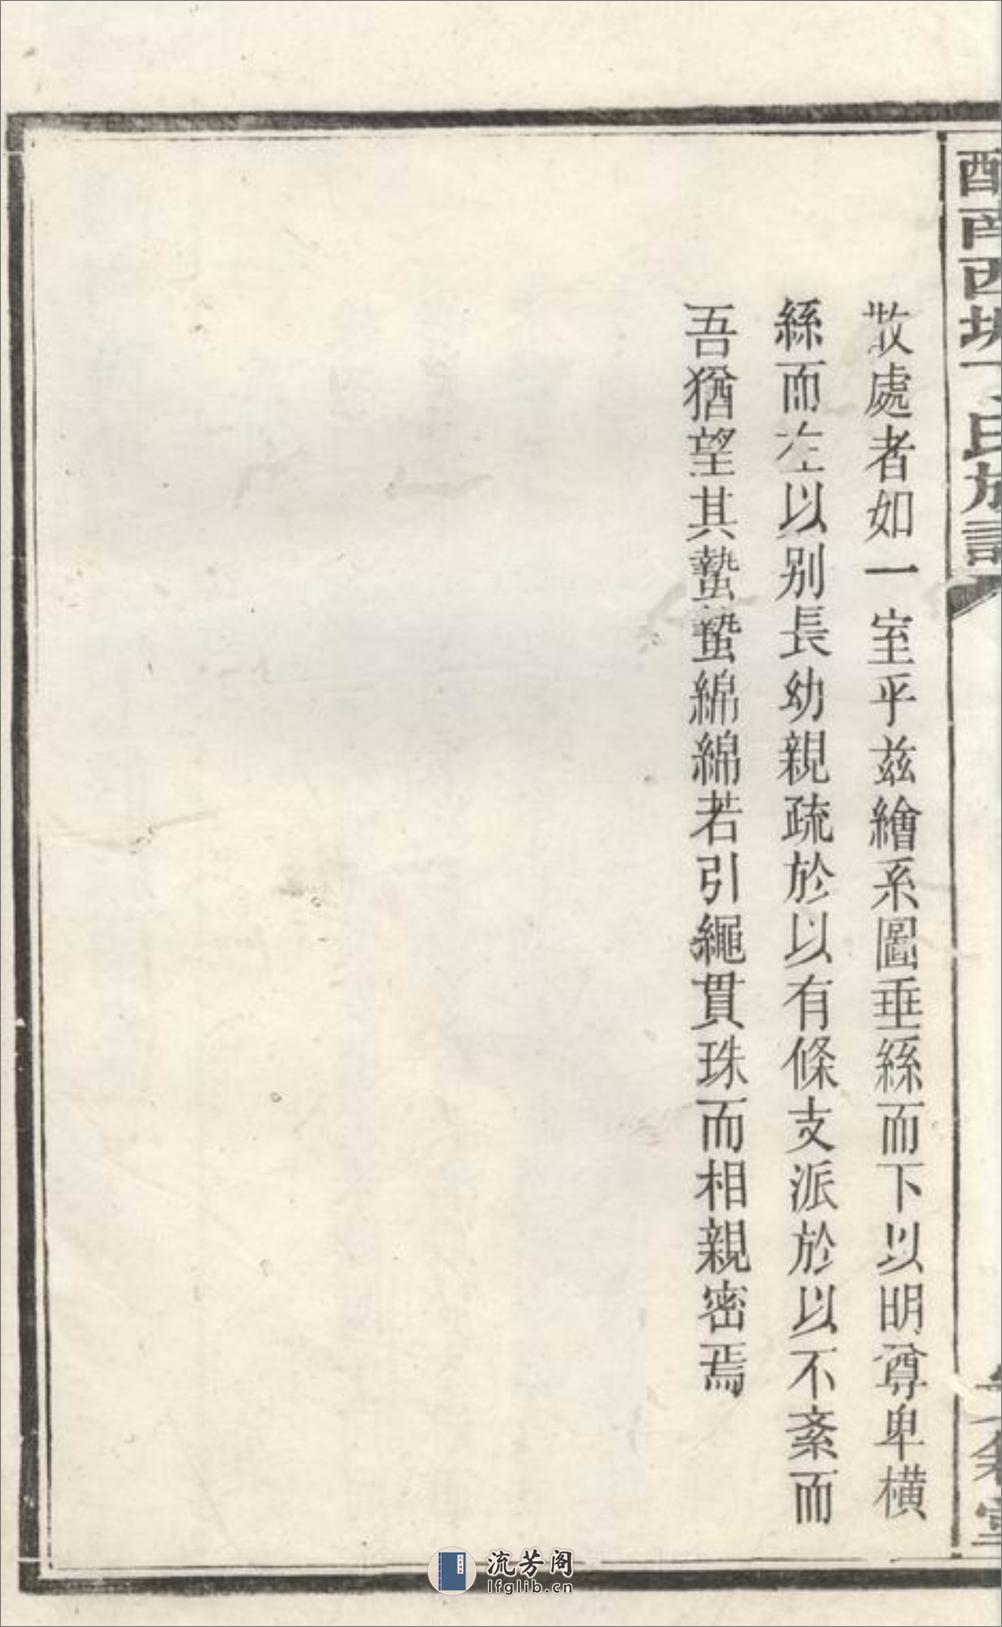 南西氏族譜
散處者如一室乎茲繪系圖垂絲而下以明尊卑橫
絲而左以别長幼親疏於以有條支派於以不紊而
吾猶望其蟄蟄綿綿若引繩貫珠而相親密焉
流芳阁
lfglib.cn